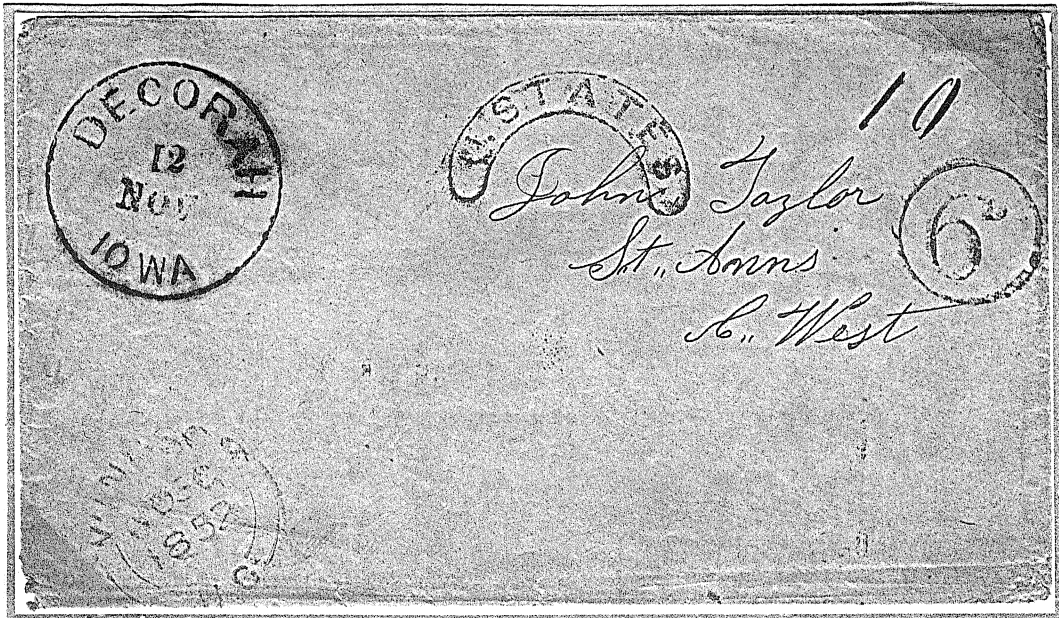 DECORAH
12
NOV
IOWA
U. STATES
10
6D
John Taylor
St,, Anns
C,, West
1852